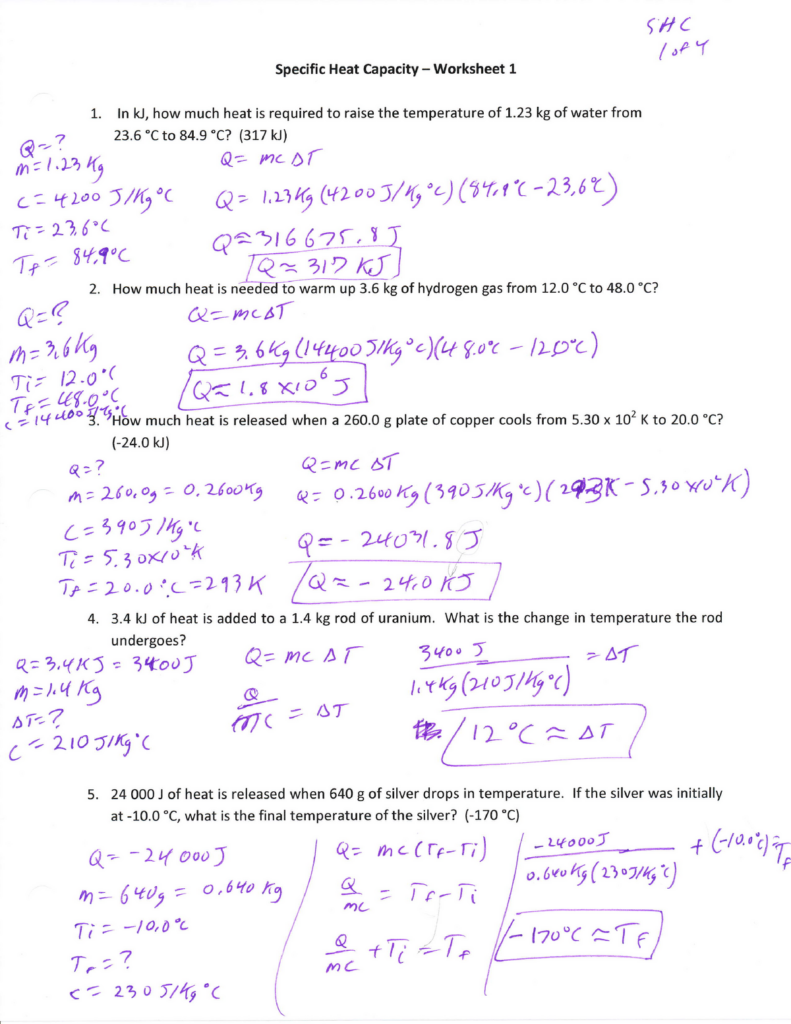 SHC
1 of 4
Specific Heat Capacity – Worksheet 1
1. In kJ, how much heat is required to raise the temperature of 1.23 kg of water from
23.6 °C to 84.9 °C? (317 kJ)
Q=?
m=1.23 Kg
Q= mc ΔT
c= 4200 J/Kg°C
Q= 1.23Kg (4200 J/Kg°C)(84.9°C-23.6°C)
Ti= 23.6°C
Q=316675.8 J
Tf= 84.9°C
Q≈ 317 KJ
2. How much heat is needed to warm up 3.6 kg of hydrogen gas from 12.0 °C to 48.0 °C?
Q=?
Q=mcΔT
m=3.6Kg
Q= 3.6Kg(14400J/Kg°C)(48.0°C – 12.0°C)
Ti= 12.0°C
Tf= 48.0°C
Q≈ 1.8 x10⁶ J
c=14400J/Kg°C
3. How much heat is released when a 260.0 g plate of copper cools from 5.30 x 10² K to 20.0 °C?
(-24.0 kJ)
Q=?
Q=mc ΔT
m= 260.0g = 0.2600Kg
Q= 0.2600Kg(390J/Kg°C)(293K-5.30x10²K)
c=390J/Kg°C
Q= - 24031.8 J
Ti= 5.30x10²K
Tf=20.0°C=293K
Q≈ - 24.0 KJ
4. 3.4 kJ of heat is added to a 1.4 kg rod of uranium. What is the change in temperature the rod
undergoes?
Q=3.4KJ = 3400J
Q= mc ΔT
3400 J
= ΔT
m=1.4 Kg
1.4Kg(210J/Kg°C)
ΔT=?
Q
mc = ΔT
c= 210J/Kg°C
12°C ≈ ΔT
5. 24 000 J of heat is released when 640 g of silver drops in temperature. If the silver was initially
at -10.0 °C, what is the final temperature of the silver? (-170 °C)
Q= -24 000J
Q= mc(Tf-Ti)
-24000J
+ (-10.0°C)=Tf
0.640Kg(230J/Kg°C)
m= 640g = 0.640 Kg
Q
mc = Tf-Ti
Ti= -10.0°C
-170°C ≈Tf
Tf=?
Q
mc +Ti =Tf
c= 230J/Kg°C